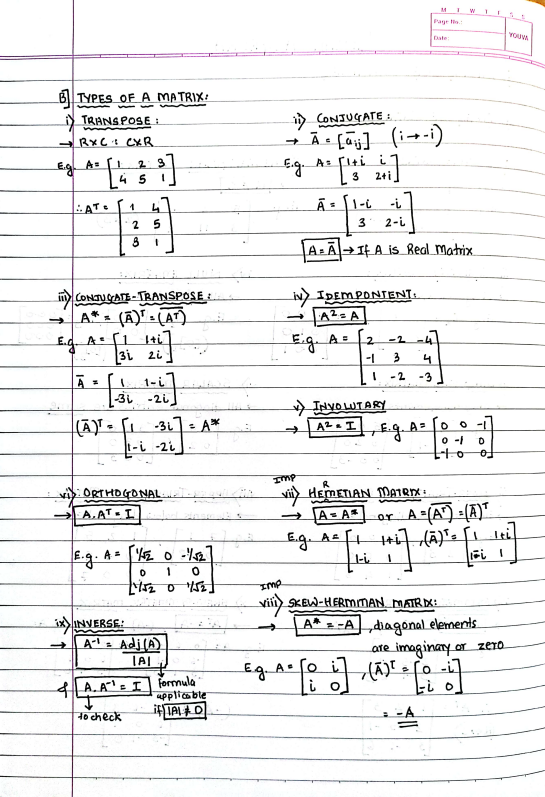 M T W T F S S
Page No.:
Date:
YOUVA
B] TYPES OF A MATRIX:
i) TRANSPOSE:
→ R×C : C×R
E.g. A = [1 2 3
4 5 1]
∴ Aᵀ = [1 4
2 5
3 1]
ii) CONJUGATE:
→ Ā = [āij] (i → -i)
E.g. A = [1+i i
3 2+i]
Ā = [1-i -i
3 2-i]
A = Ā → If A is Real Matrix
iii) CONJUGATE-TRANSPOSE:
→ A* = (Ā)ᵀ = (A̅ᵀ̅)
E.g A = [1 1+i
3i 2i]
Ā = [1 1-i
-3i -2i]
(Ā)ᵀ = [1 -3i
1-i -2i] = A*
iv) IDEMPONTENT:
→ A² = A
E.g. A = [2 -2 -4
-1 3 4
1 -2 -3]
v) INVOLUTARY
→ A² = I , E.g. A = [0 0 -1
0 -1 0
-1 0 0]
vi) ORTHOGONAL
→ A.Aᵀ = I
E.g. A = [1/√2 0 -1/√2
0 1 0
1/√2 0 1/√2]
Imp
vii) HERMETIAN MATRIX:
→ A = A* or A = (A̅ᵀ̅) = (Ā)ᵀ
E.g. A = [1 1+i
1-i 1] , (Ā)ᵀ = [1 1+i
1-i 1]
Imp
viii) SKEW-HERMITIAN MATRIX:
→ A* = -A , diagonal elements
are imaginary or zero
E.g. A = [0 i
i 0] , (Ā)ᵀ = [0 -i
-i 0]
= -A
ix) INVERSE:
→ A⁻¹ = Adj(A)
|A|
& A.A⁻¹ = I
to check
formula
applicable
if |A| ≠ 0